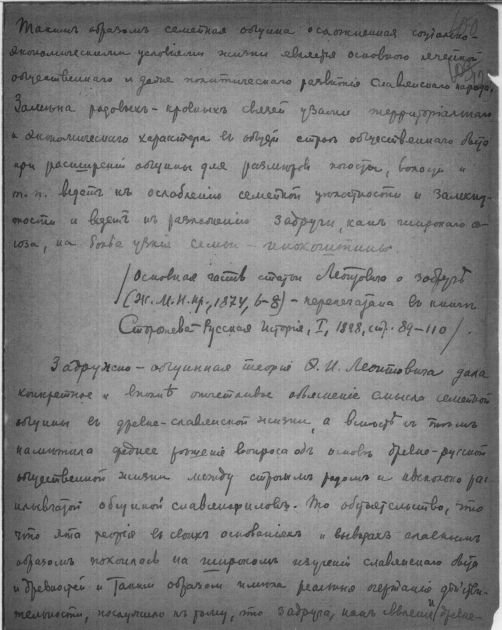 Такимъ образомъ семейная община осложненная соціально-
экономическими условіями жизни является основною ячейкой
общественнаго и даже политическаго развитія славянскаго народа.
Замѣна родовыхъ-кровныхъ связей узами территоріальнаго
и экономическаго характера въ общемъ строѣ общественнаго быта
при расширеніи общины до размѣровъ погоста, волости и
т. п. ведетъ къ ослабленію семейной
и ведетъ къ разложенію Задруги, какъ широкаго со-
юза, на болѣе узкія семьи - инокоштины
/Основная часть статьи Леонтовича о задругѣ
(Ж.М.Н.Пр., 1874, 6-8) - перепечатана въ книгѣ
Сторожева - Русская Исторія, I, 1898, стр. 89-110/.
Задружно-общинная теорія Ф. И. Леонтовича дала
конкретное и вполнѣ отчетливое объясненіе смысла семейной
общины въ древне-славянской жизни, а вмѣстѣ съ тѣмъ
намѣтила среднее рѣшеніе вопроса объ основѣ древне-русской
общественной жизни между строгимъ родомъ и нѣсколько рас-
плывчатой общиной славянофиловъ. То обстоятельство, что
что эта теорія въ своихъ основаніяхъ и выводахъ главнымъ
образомъ покоилась на широкомъ изученіи славянскаго быта
и древностей и такимъ образомъ имѣла реальныя очертанія дѣйстви-
тельности, послужило къ тому, что задруга, какъ явленіе и древне-